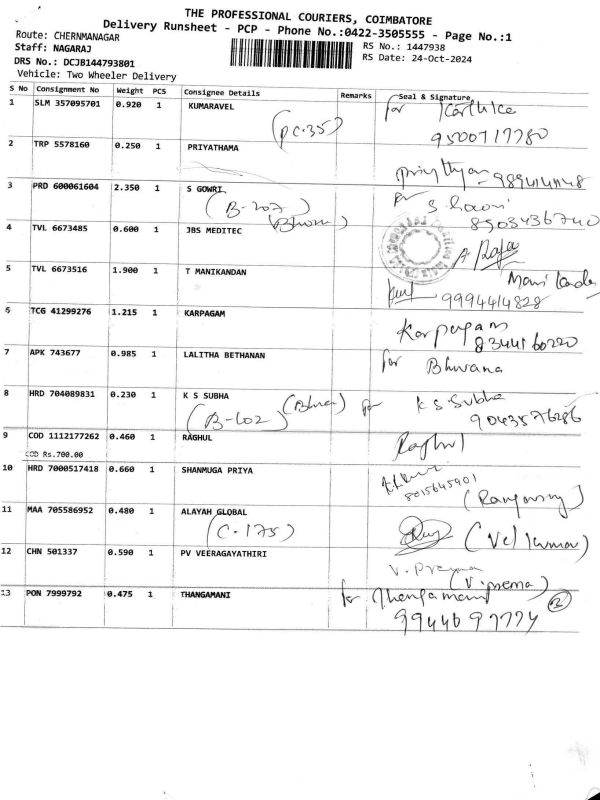 THE PROFESSIONAL COURIERS, COIMBATORE
Delivery Runsheet - PCP - Phone No.:0422-3505555 - Page No.:1
Route: CHERNMANAGAR
RS No.: 1447938
Staff: NAGARAJ
RS Date: 24-Oct-2024
DRS No.: DCJB144793801
Vehicle: Two Wheeler Delivery
S No Consignment No Weight PCS Consignee Details Remarks Seal & Signature
1 SLM 357095701 0.920 1 KUMARAVEL for Karthika
(PC-35) 9500717780
2 TRP 5578160 0.250 1 PRIYATHAMA
3 PRD 600061604 2.350 1 S GOWRI for S. Gowri
(B-207) (Bhuvana) 8903436740
4 TVL 6673485 0.600 1 JBS MEDITEC A Raja
5 TVL 6673516 1.900 1 T MANIKANDAN
9994414828
6 TCG 41299276 1.215 1 KARPAGAM Karpagam
8344160220
7 APK 743677 0.985 1 LALITHA BETHANAN for Bhuvana
8 HRD 704089831 0.230 1 K S SUBHA for K S Subha
(B-602) 9043576286
9 COD 1112177262 0.460 1 RAGHUL Raghul
COD Rs.700.00
10 HRD 7000517418 0.660 1 SHANMUGA PRIYA
8015645901
11 MAA 705586952 0.480 1 ALAYAH GLOBAL
(C-175) (Velkumar)
12 CHN 501337 0.590 1 PV VEERAGAYATHIRI V. Prema
(V. prema)
13 PON 7999792 0.475 1 THANGAMANI for Thangamani
9944697774